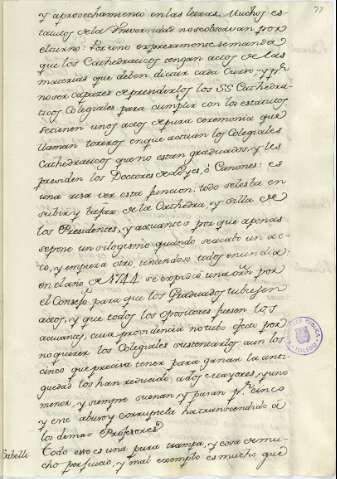 y aprovechamiento en las letras. Muchos es
tatutos de la Universidad no se observan por
el turno. Por uno expresamente se manda
que los Cathedraticos tengan actos de las
materias que deben dictar cada Curso, y pr.
no ser capaces de prenderlos los SS Cathedra
ticos Colegiales para cumplir con los estatutos
tienen unos actos de pura ceremonia que
llaman toreros en que actuan los Colegiales
Cathedraticos que no estan graduados, y les
presiden los Doctores de Leyes, ó Canones: es
una risa ver esta funcion: todo se les ba en
subir, y bajar de la Cathedra, y silla de
los Presidentes, y actuantes por que apenas
se pone un silogismo quando se acaba un ac
to, y empieza otro, teniendose tales en un dia:
en el año de 1744 se expidió una orn. por
el Consejo para que los Graduados tubiesen
actos, y que todos los opositores fuesen los
actuantes, cuia providencia no tubo efecto por
no querer los Colegiales sustentarlos aun los
cinco que precisa tener para ganar la anti
guedad los han reducido a dos mayores, y uno
menor, y siempre suenan, y pasan pr. cinco
y este abuso, y corruptela ha trascendido a
los demas Profesores
Todo esto es una pura trampa, y cosa de mu
cho perjuicio, y mal exemplo es mucho que